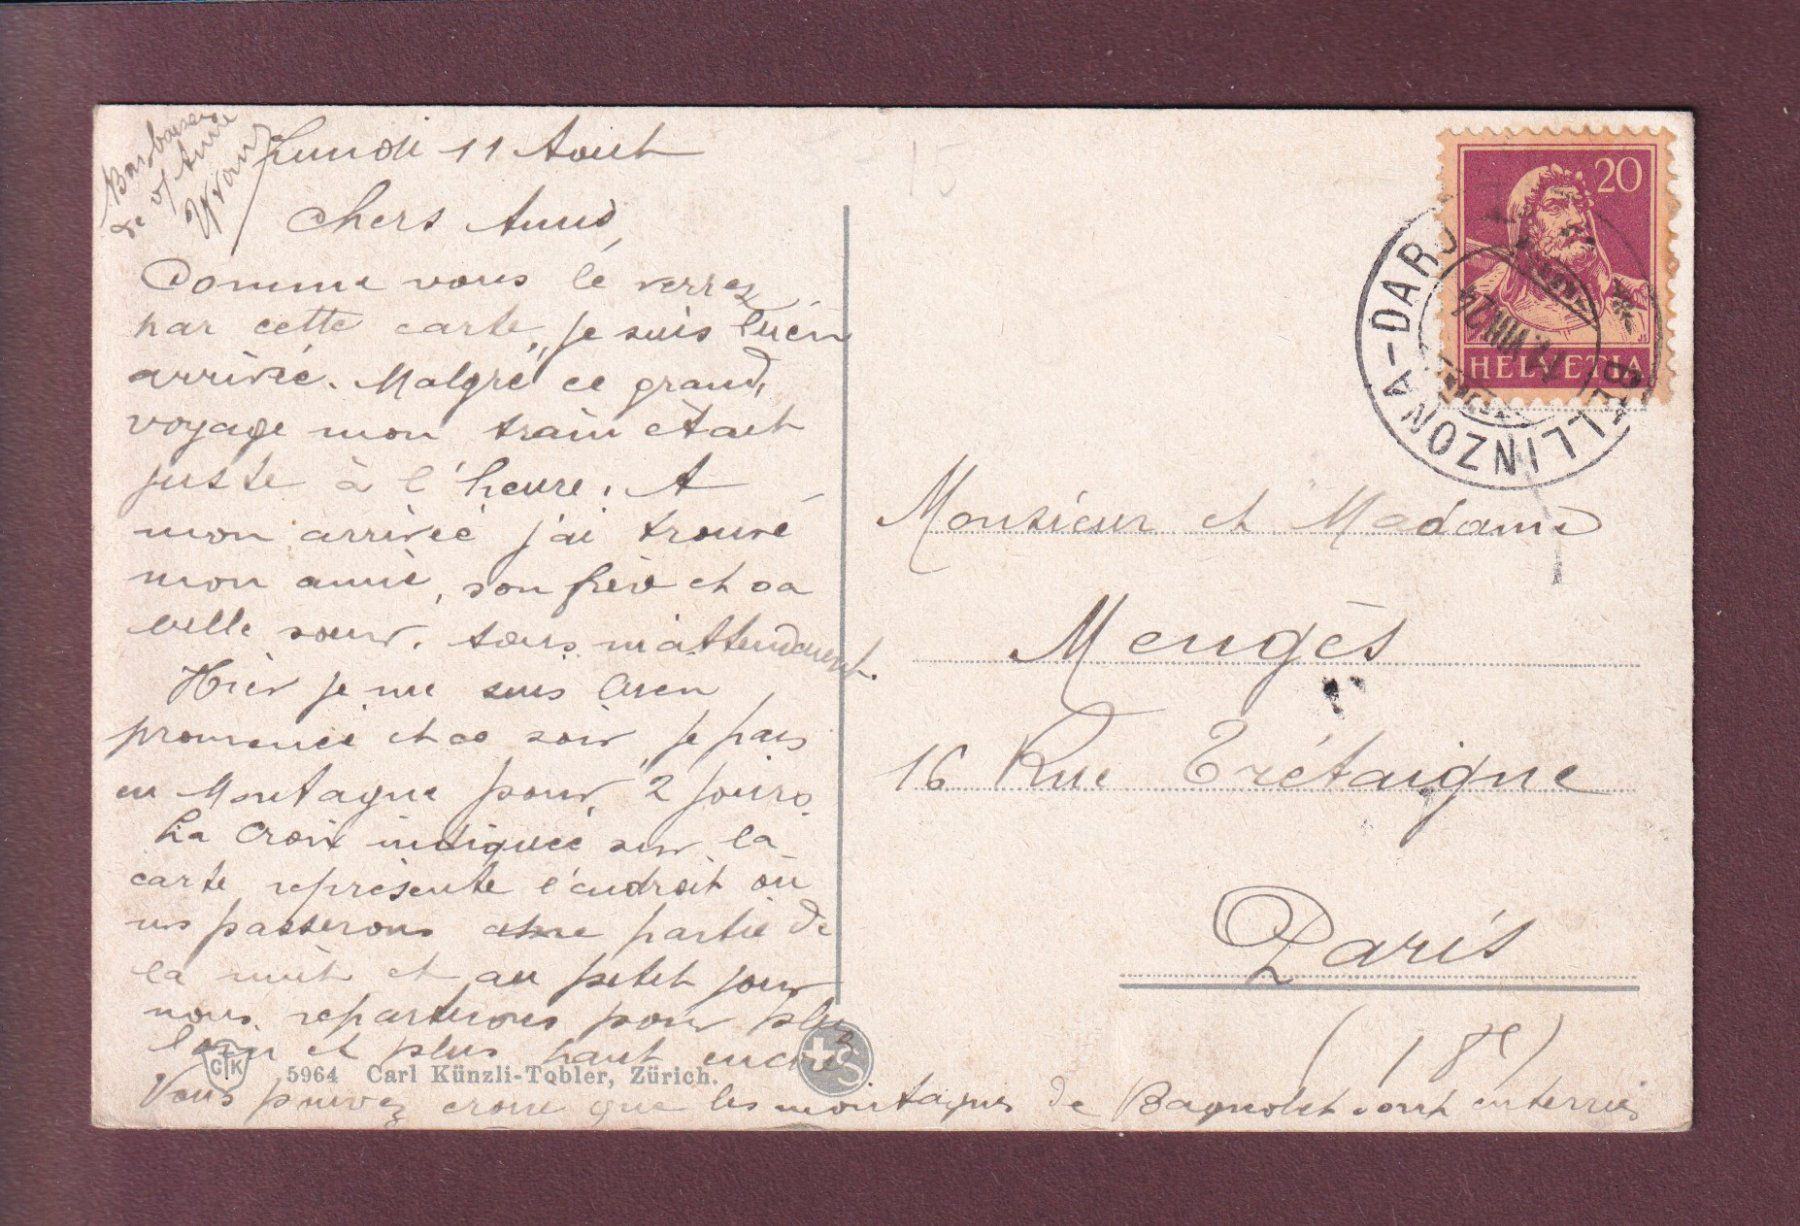 Lundi 11 Août
Chers Amis,
Comme vous le verrez
par cette carte, je suis bien
arrivée. Malgré ce grand,
voyage mon train était
juste à l'heure. A
mon arrivée j'ai trouvé
mon amie, son frère et sa
belle sœur. tous m'attendaient.
Hier je me suis bien
promenée et ce soir, je pars
en Montagne pour 2 jours.
La croix indiquée sur la
carte représente l'endroit où
ns passerons une partie de
la nuit et au petit jour
nous repartirons pour plus
loin et plus haut encore
Vous pouvez croire que les montagnes de Bagnolet sont enterrées
Bons baisers
de v/ Amie
Yvonne
20
HELVETIA
BELLINZONA-DARJ
VIII 24
Monsieur et Madame
Mengès
16 Rue Trétaigne
Paris
(18e)
CTK
5964 Carl Künzli-Tobler, Zürich.
+S
15